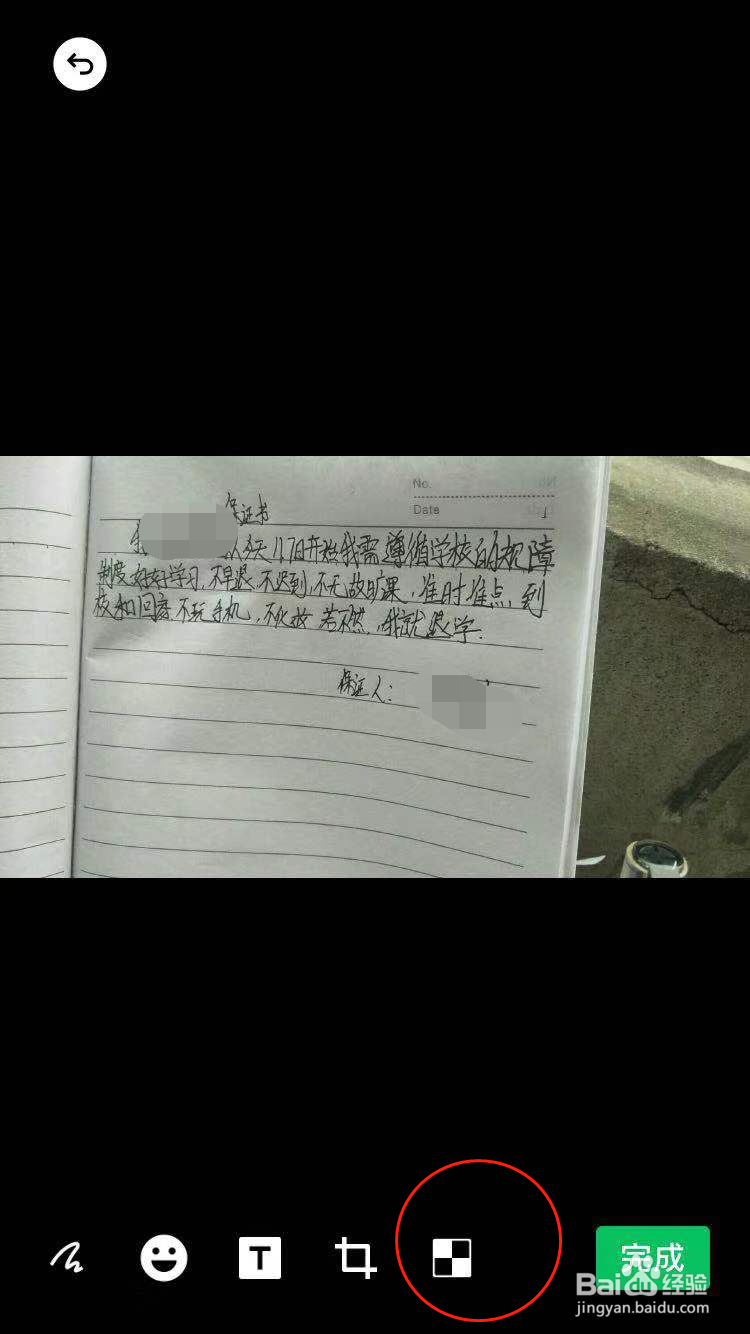 No.
Date
保证书
我 从今天11.7日开始我需遵循学校的规障
制度,好好学习,不早退,不迟到,不无故旷课,准时准点到
校和回寝,不玩手机,不化妆,若不然,我就退学.
保证人:
T
完成
Baidu经验
jingyan.baidu.com